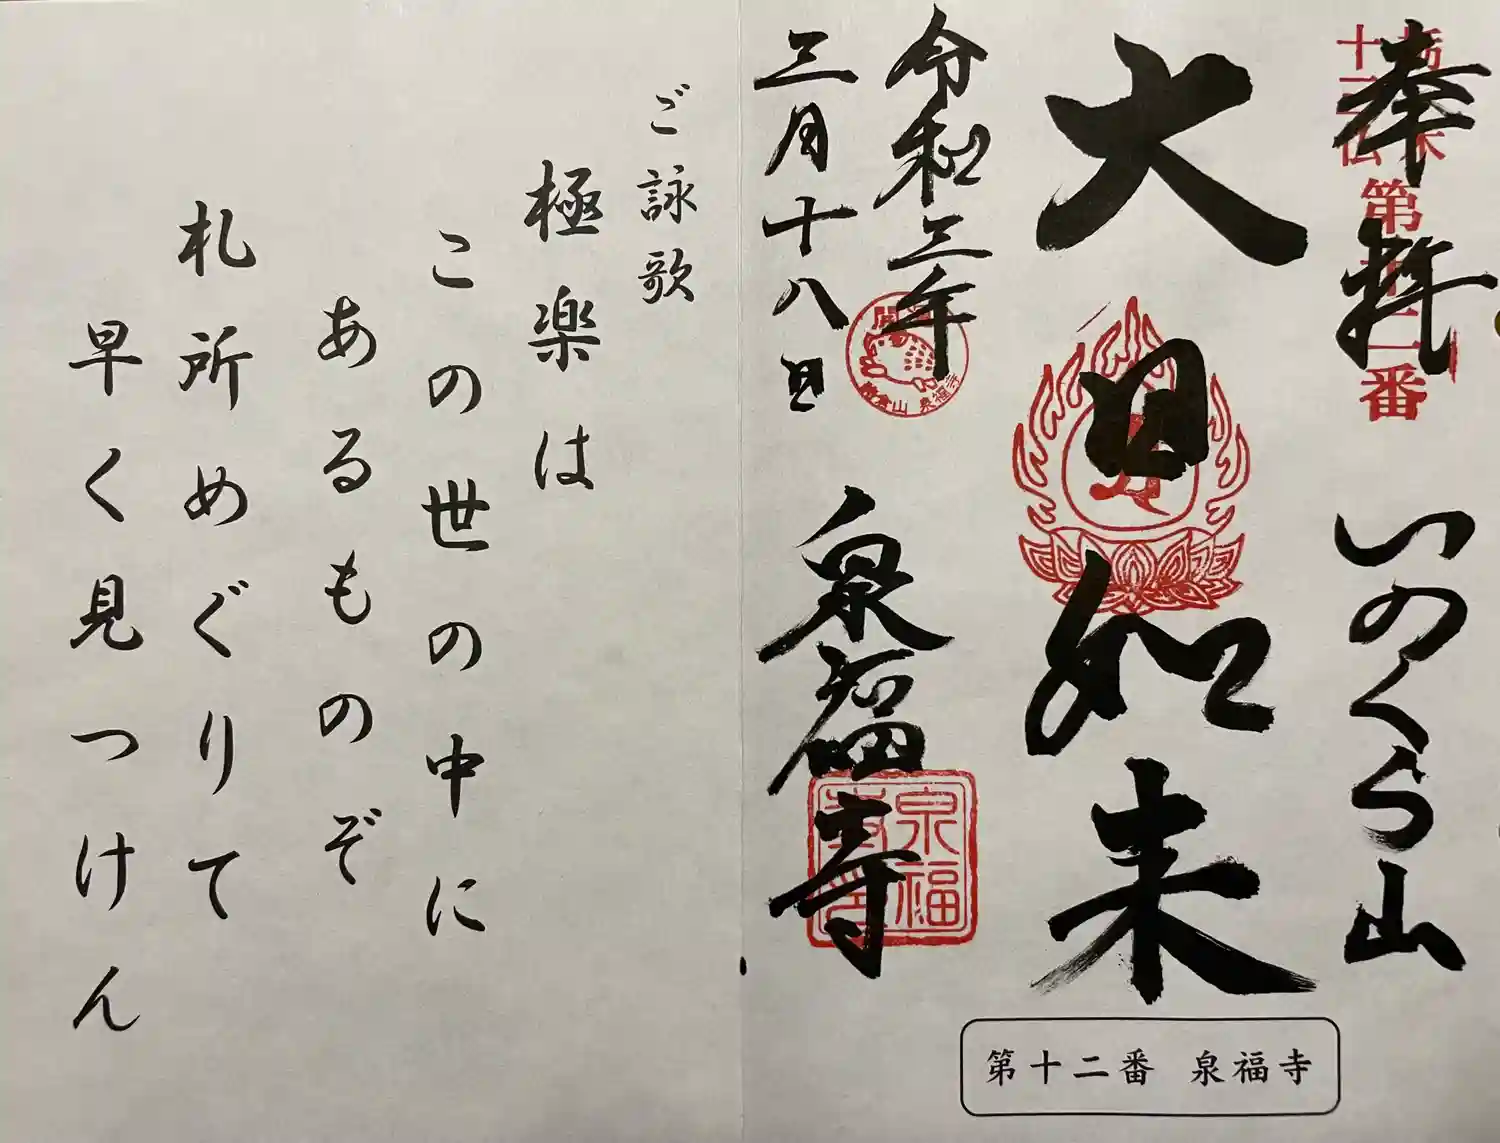 奉拝 いのくら山
第十二番
大日如来
令和三年
三月十八日 泉福寺
泉福
第十二番 泉福寺
ご詠歌
極楽は
この世の中に
あるものぞ
札所めぐりて
早く見つけん